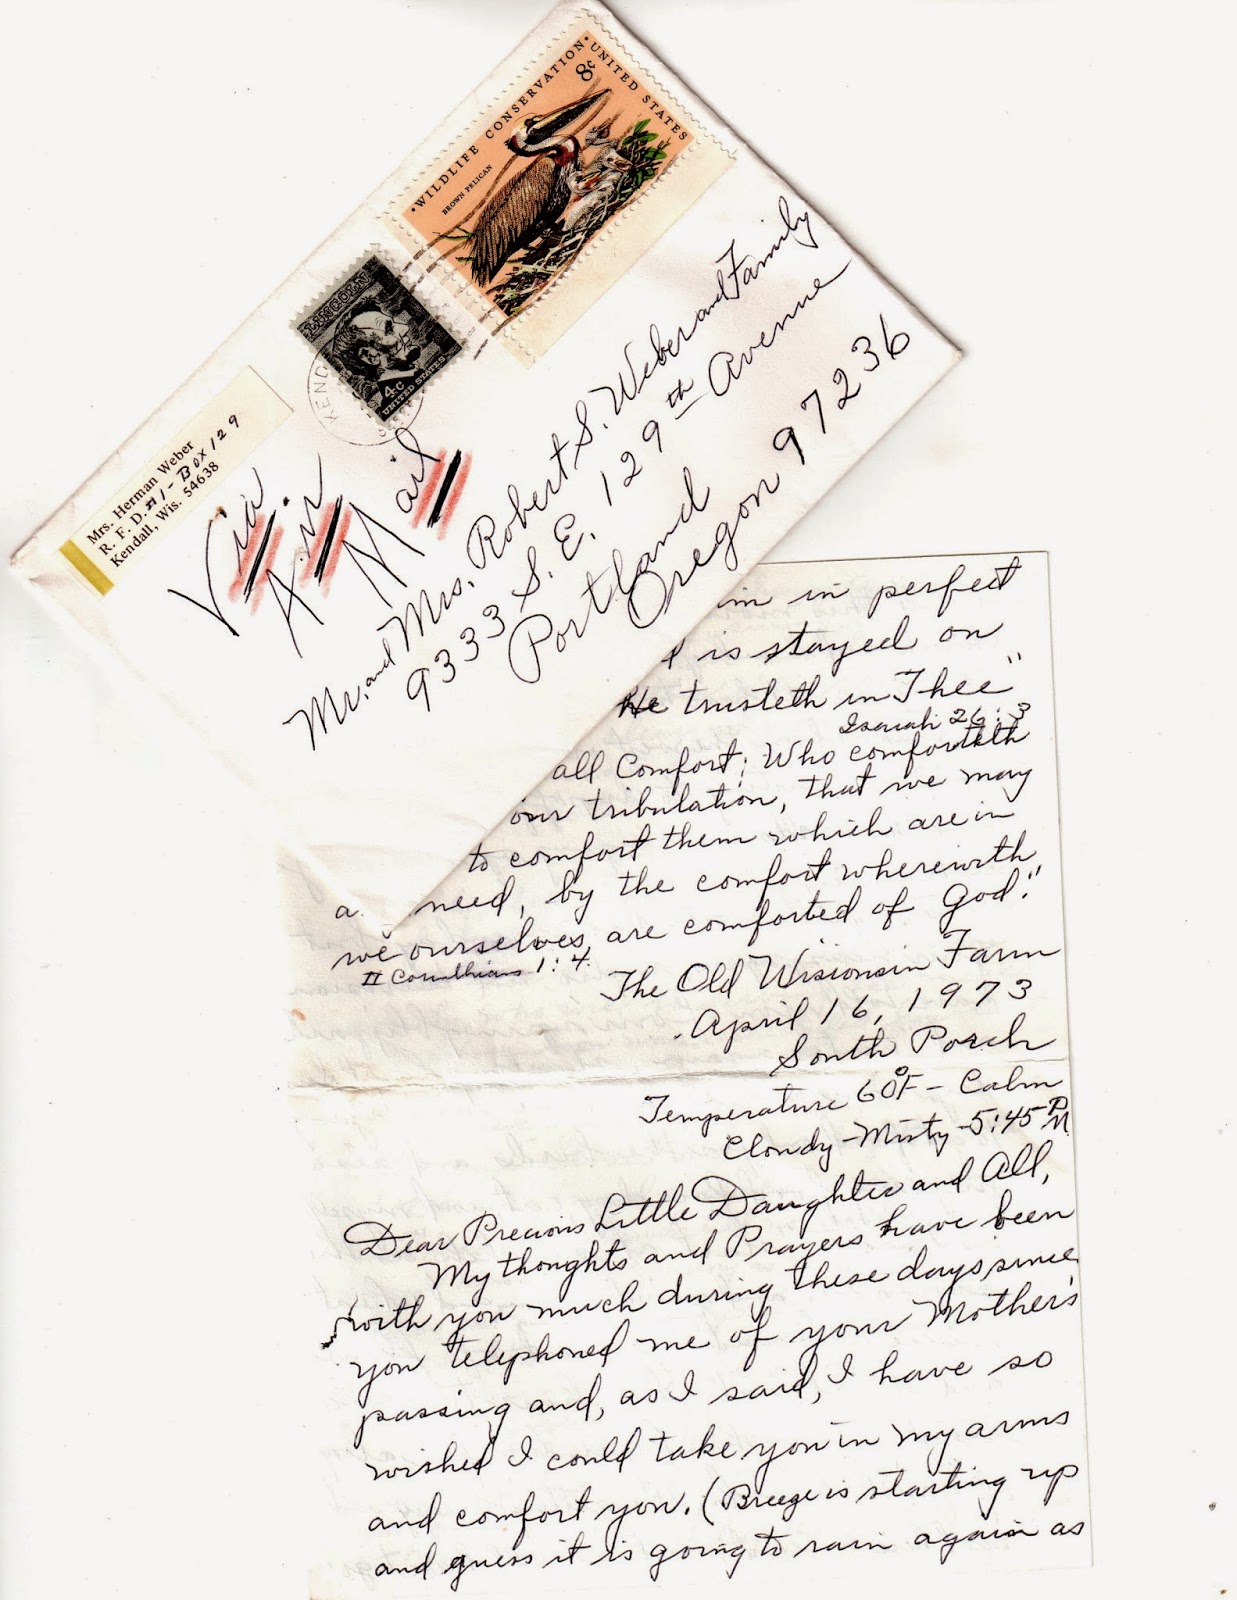 WILDLIFE CONSERVATION
UNITED STATES
8c
BROWN PELICAN
LINCOLN
4c
UNITED STATES
KEND
Mrs. Herman Weber
R. F. D. #1 - Box 129
Kendall, Wis. 54638
Via
Air
Mail
Mr. and Mrs. Robert S. Weber and Family
9333 S. E. 129th Avenue
Portland
Oregon 97236
in perfect
is stayed on
He trusteth in Thee"
Isaiah 26:3
all Comfort; Who comforteth
our tribulation, that we may
to comfort them which are in
need, by the comfort wherewith
we ourselves, are comforted of God."
II Corinthians 1:4.
The Old Wisconsin Farm
April 16, 1973
South Porch
Temperature 60°F - Calm
Cloudy - Misty - 5:45 PM
Dear Precious Little Daughter and All,
My thoughts and Prayers have been
with you much during these days since
you telephoned me of your Mother's
passing and, as I said, I have so
wished I could take you in my arms
and comfort you. (Breeze is starting up
and guess it is going to rain again as